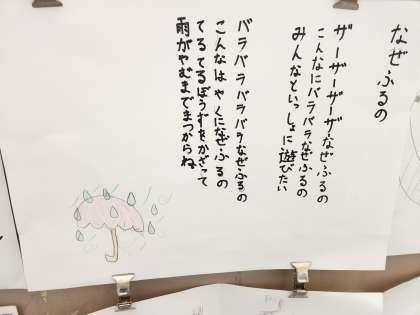 なぜふるの
ザーザーザーザなぜふるの
こんなにバラバラなぜふるの
みんなといっしょに遊びたい
バラバラバラバラなぜふるの
こんなはやくになぜふるの
てるてるぼうずをかざって
雨がやむまでまつからね